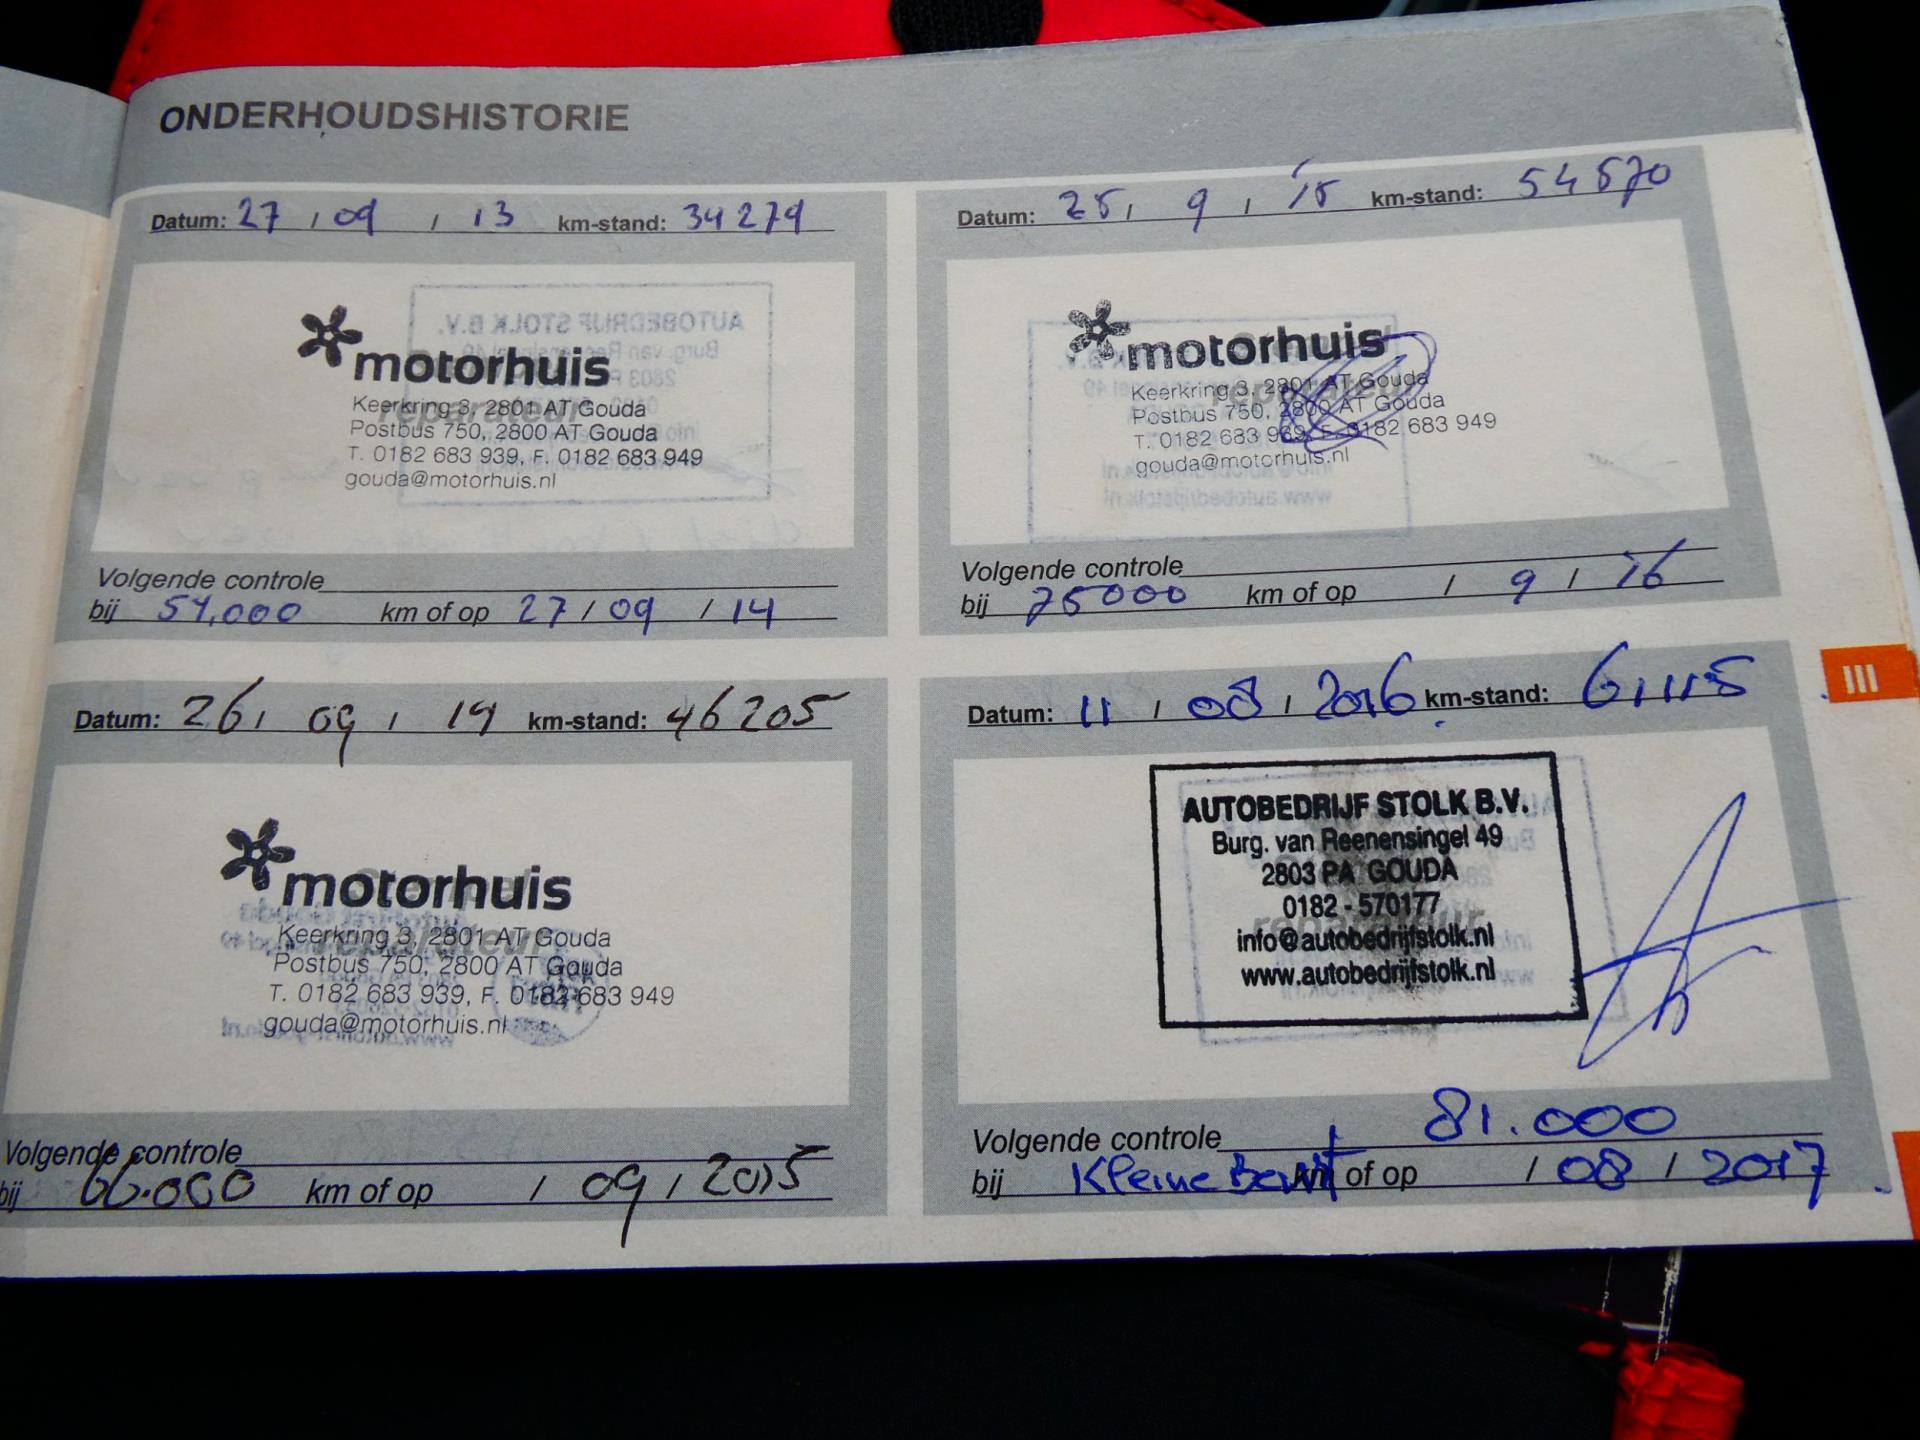 ONDERHOUDSHISTORIE
Datum: 27 / 09 / 13 km-stand: 34279
motorhuis
reparateur
Keerkring 3, 2801 AT Gouda
Postbus 750, 2800 AT Gouda
T. 0182 683 939, F. 0182 683 949
gouda@motorhuis.nl
Volgende controle
bij 54,000 km of op 27 / 09 / 14
Datum: 25 / 9 / '15 km-stand: 54570
motorhuis
reparateur
Keerkring 3, 2801 AT Gouda
Postbus 750, 2800 AT Gouda
T. 0182 683 939, F. 0182 683 949
gouda@motorhuis.nl
Volgende controle
bij 75000 km of op / 9 / 16
Datum: 26 / 09 / 14 km-stand: 46205
motorhuis
reparateur
Keerkring 3, 2801 AT Gouda
Postbus 750, 2800 AT Gouda
T. 0182 683 939, F. 0182 683 949
gouda@motorhuis.nl
Volgende controle
bij 66.000 km of op / 09 / 2015
Datum: 11 / 08 / 2016 km-stand:
AUTOBEDRIJF STOLK B.V.
Burg. van Reenensingel 49
2803 PA GOUDA
0182 - 570177
reparateur
info@autobedrijfstolk.nl
www.autobedrijfstolk.nl
Volgende controle 81.000
bij Kleine Beurt km of op / 08 / 2017
III